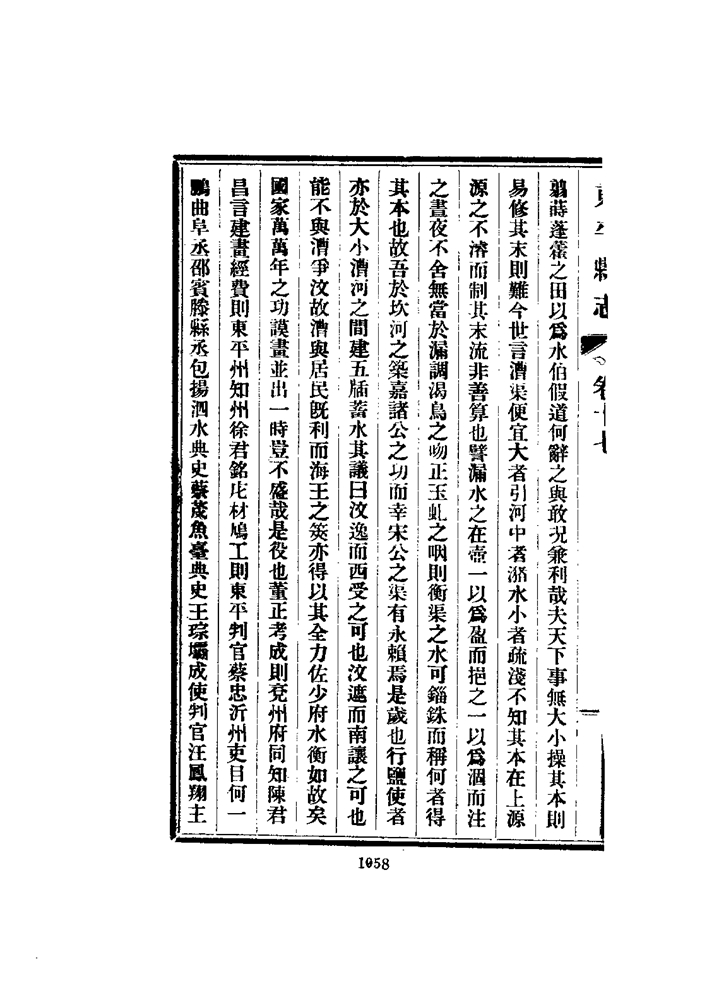 東平縣志 卷十七
鶉蒔蓬藿之田以爲水伯假道何辭之與敢況兼利哉夫天下事無大小操其本則
易修其末則難今世言漕渠便宜大者引河中者瀦水小者疏淺不知其本在上源
源之不濬而制其末流非善算也譬漏水之在壺一以爲盈而挹之一以爲涸而注
之晝夜不舍無當於漏調渴烏之吻正玉虬之咽則衡渠之水可錙銖而稱何者得
其本也故吾於坎河之築嘉諸公之功而幸宋公之渠有永賴焉是歲也行鹽使者
亦於大小漕河之間建五牐蓄水其議曰汶逸而西受之可也汶遮而南讓之可也
能不與漕爭汶故漕與居民旣利而海王之筴亦得以其全力佐少府水衡如故矣
國家萬萬年之功謨畫並出一時豈不盛哉是役也董正考成則兗州府同知陳君
昌言建畫經費則東平州知州徐君銘庀材鳩工則東平判官蔡忠沂州吏目何一
鵬曲阜丞邵賓滕縣丞包揚泗水典史蔡茂魚臺典史王琮壩成使判官汪鳳翔主
1058